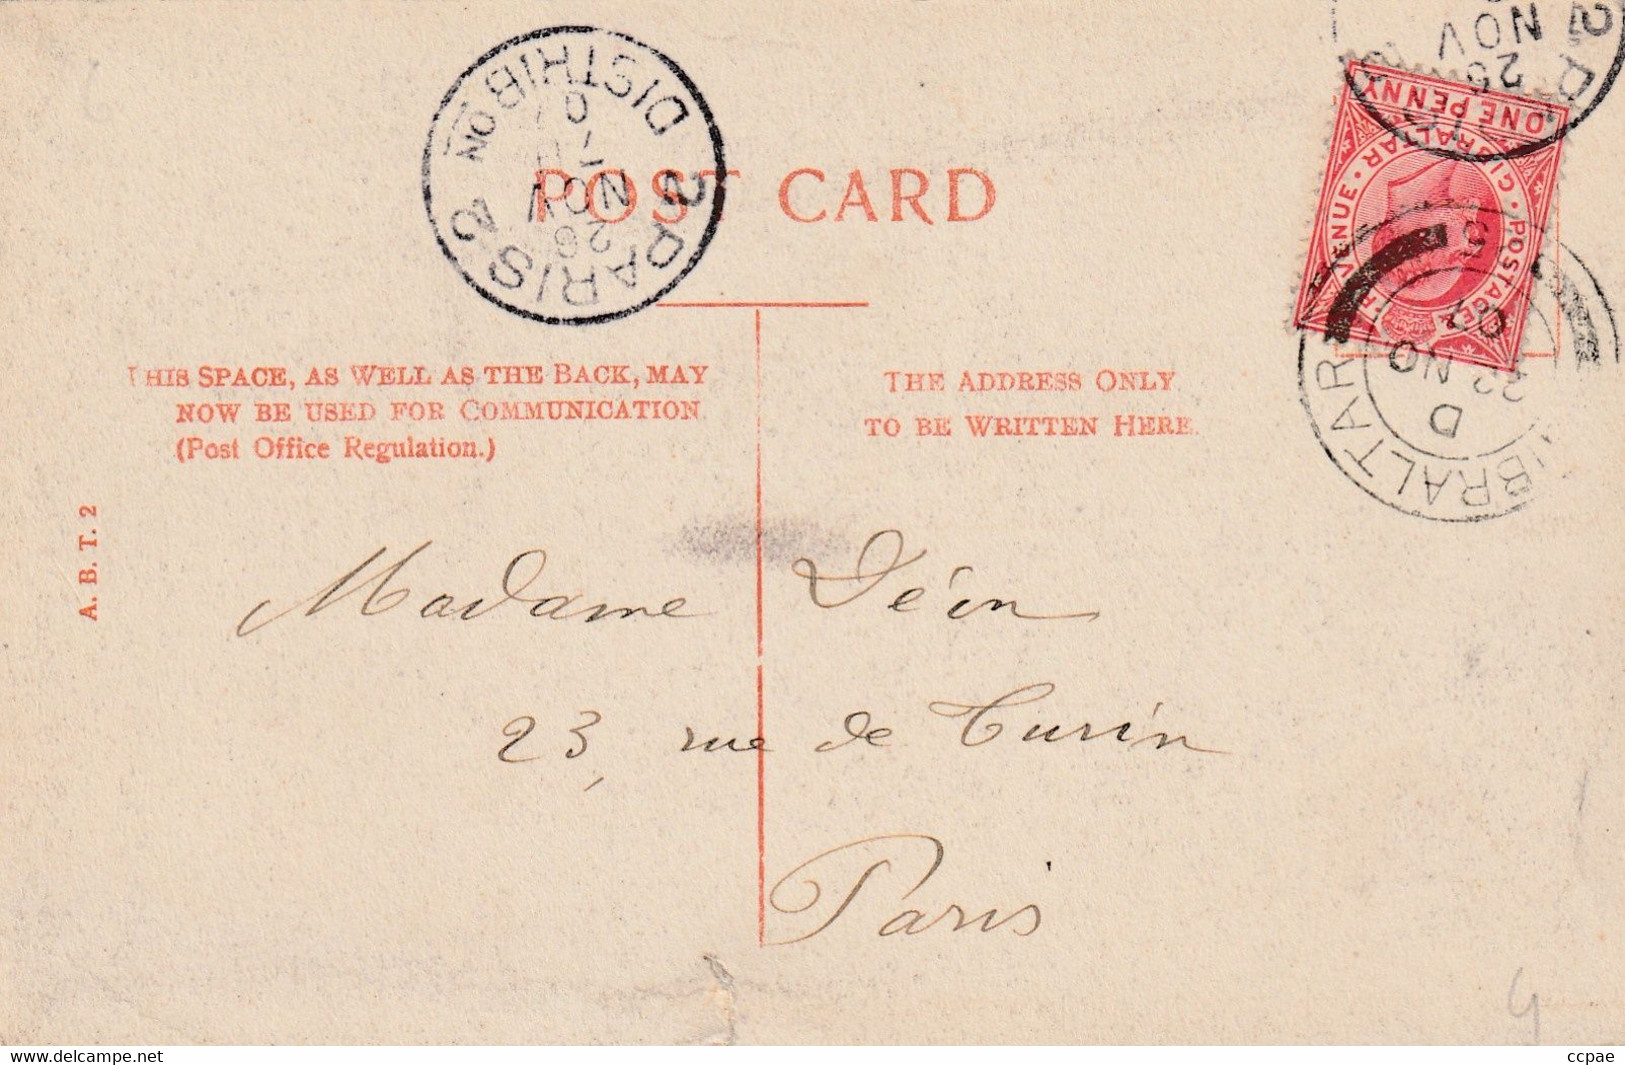 POST CARD
THIS SPACE, AS WELL AS THE BACK, MAY
NOW BE USED FOR COMMUNICATION
(Post Office Regulation.)
THE ADDRESS ONLY
TO BE WRITTEN HERE.
A. B. T. 2
Madame Déon
23, rue de Turin
Paris
2 PARIS 2
DISTRIBON
26
NOV
07
25
NOV
GIBRALTAR
D
22 NO
07
POSTAGE & REVENUE
GIBRALTAR
ONE PENNY
ccpae